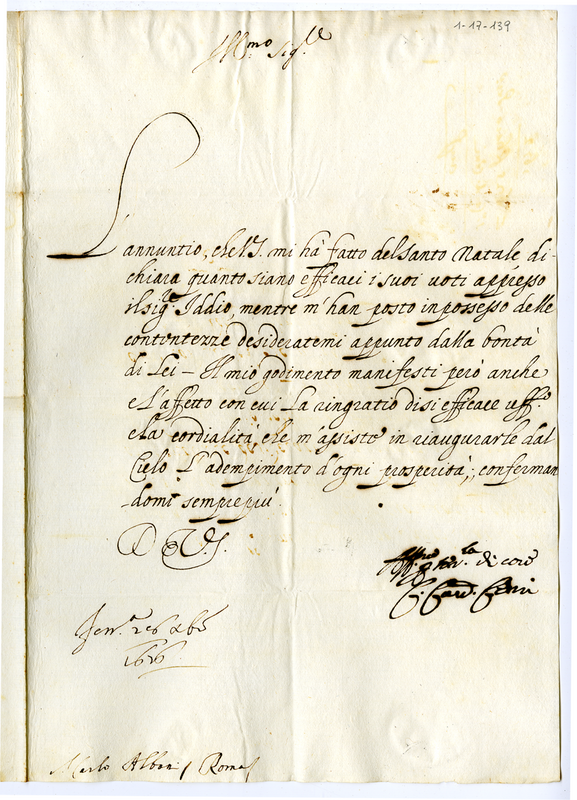 1-17-139
Ill.mo Sig.re
L'annuntio, che V.S. mi hà fatto del Santo Natale di-
chiara quanto siano efficaci i suoi voti appresso
il Sig.re Iddio, mentre m'han posto in possesso delle
contentezze desideratemi appunto dalla bontà
di Lei – Il mio godimento manifesti però anche
e l'affetto con cui La ringratio di si efficace uff.o
e la cordialità, che m'assiste in riaugurarle dal
Cielo L'adempimento d'ogni prosperità; conferman
domi sempre più
D V.S.
di core
Card.
Fer.a 26 Xbre
1676
Albani Roma